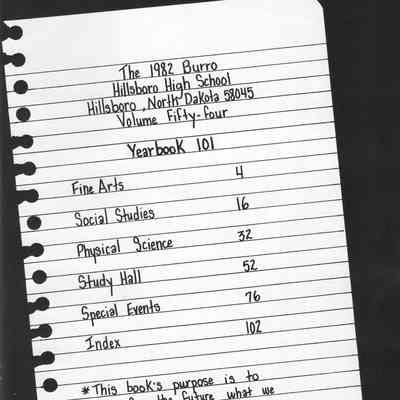 The 1982 Burro
Hillsboro High School
Hillsboro, North Dakota 58045
Volume Fifty-four
Yearbook 101
Fine Arts 4
Social Studies 16
Physical Science 32
Study Hall 52
Special Events 76
Index 102
*This book's purpose is to
for the future what we